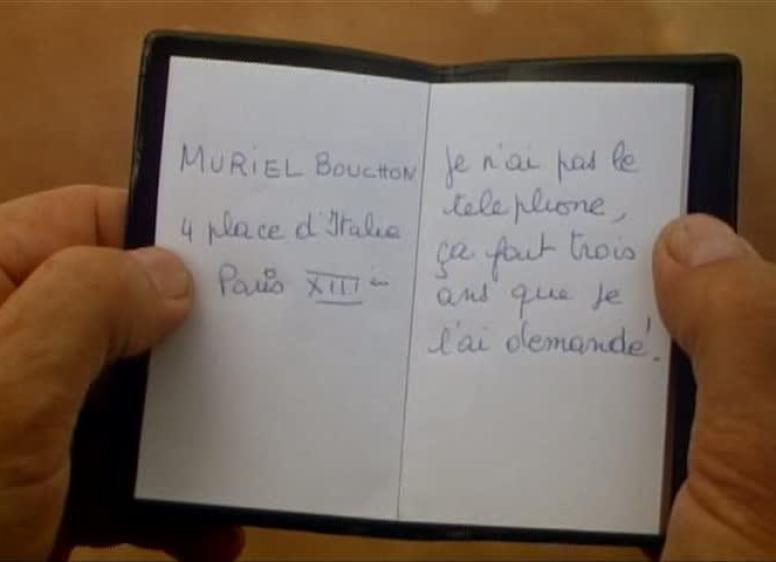 MURIEL BOUCHON
4 place d'Italie
Paris XIIIe
Je n'ai pas le
telephone,
ça fait trois
ans que je
l'ai demandé.